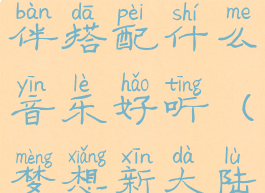 bàn dā pèi shí me
伴搭配什么
yīn lè hǎo tīng
音乐好听（
mèng xiǎng xīn dà lù
梦想新大陆